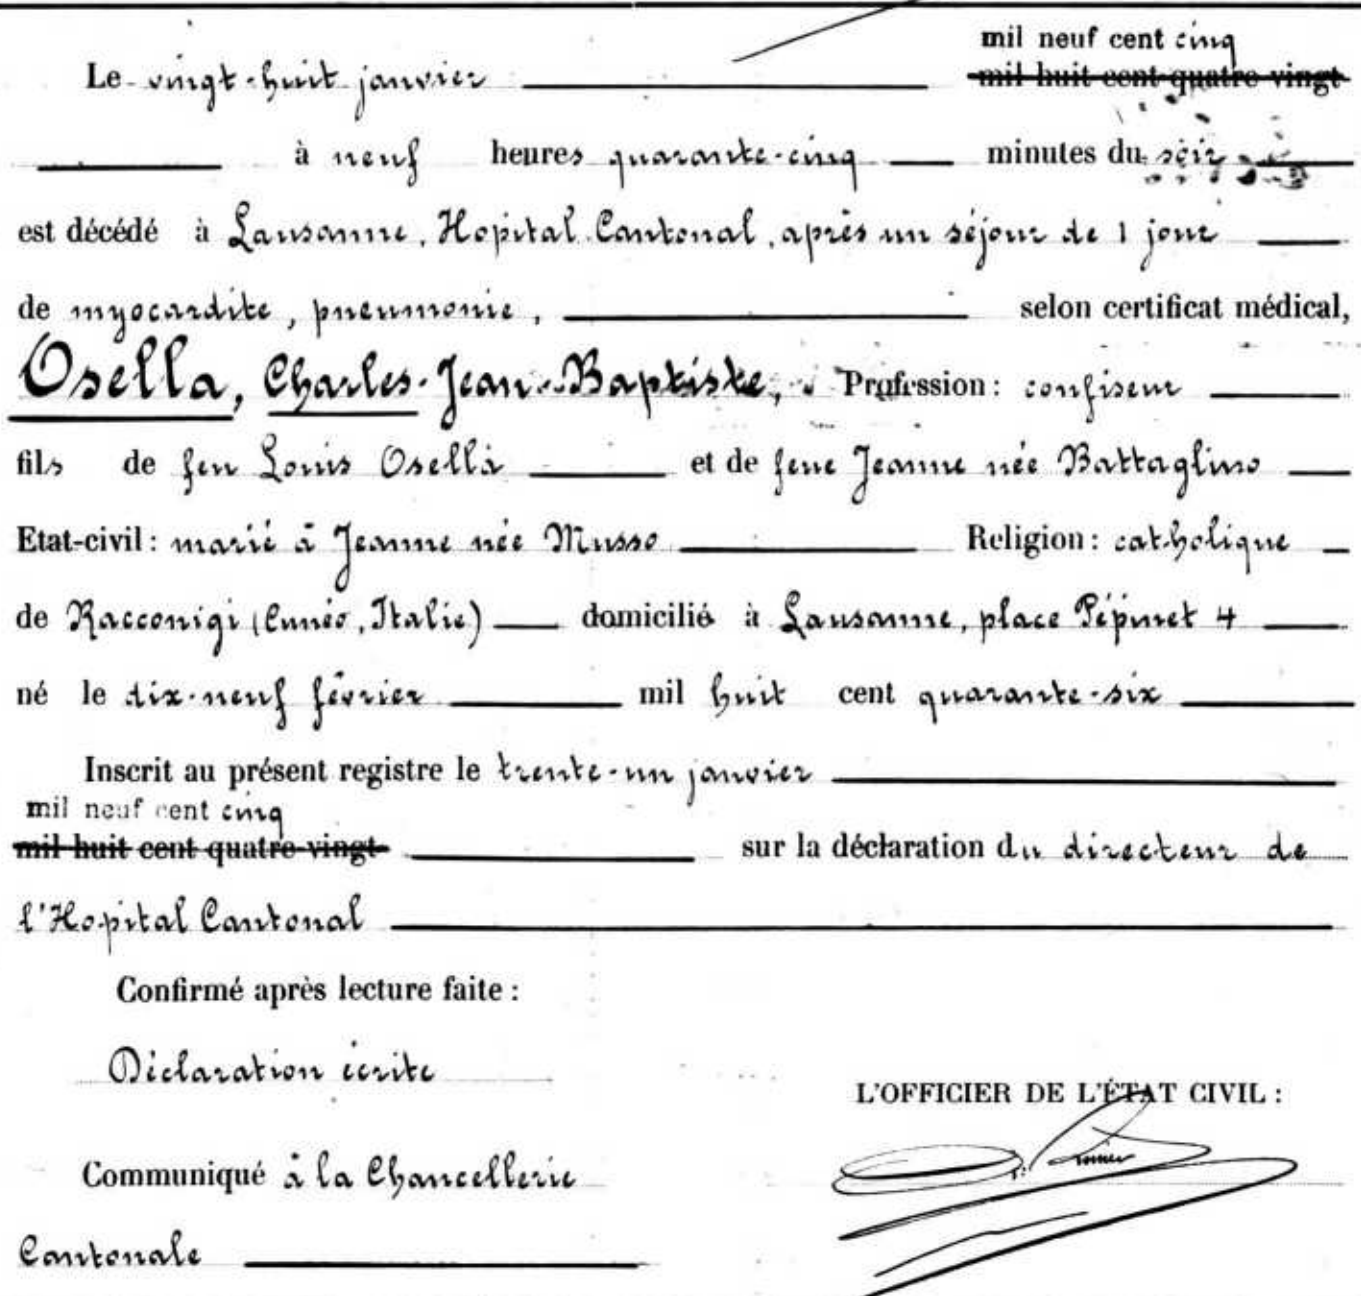 mil neuf cent cinq
Le vingt-huit janvier mil huit cent quatre-vingt
à neuf heures quarante-cinq minutes du soir
est décédé à Lausanne, Hopital Cantonal, après un séjour de 1 jour
de myocardite, pneumonie, selon certificat médical,
Osella, Charles-Jean-Baptiste, Profession : confiseur
fils de feu Louis Osella et de feue Jeanne née Battaglino
Etat-civil : marié à Jeanne née Musso Religion : catholique
de Racconigi (Cunéo, Italie) domicilié à Lausanne, place Pépinet 4
né le dix-neuf février mil huit cent quarante-six
Inscrit au présent registre le trente-un janvier
mil neuf cent cinq
mil huit cent quatre-vingt sur la déclaration du directeur de
l'Hopital Cantonal
Confirmé après lecture faite :
Déclaration écrite
L'OFFICIER DE L'ÉTAT CIVIL :
Communiqué à la Chancellerie
Cantonale